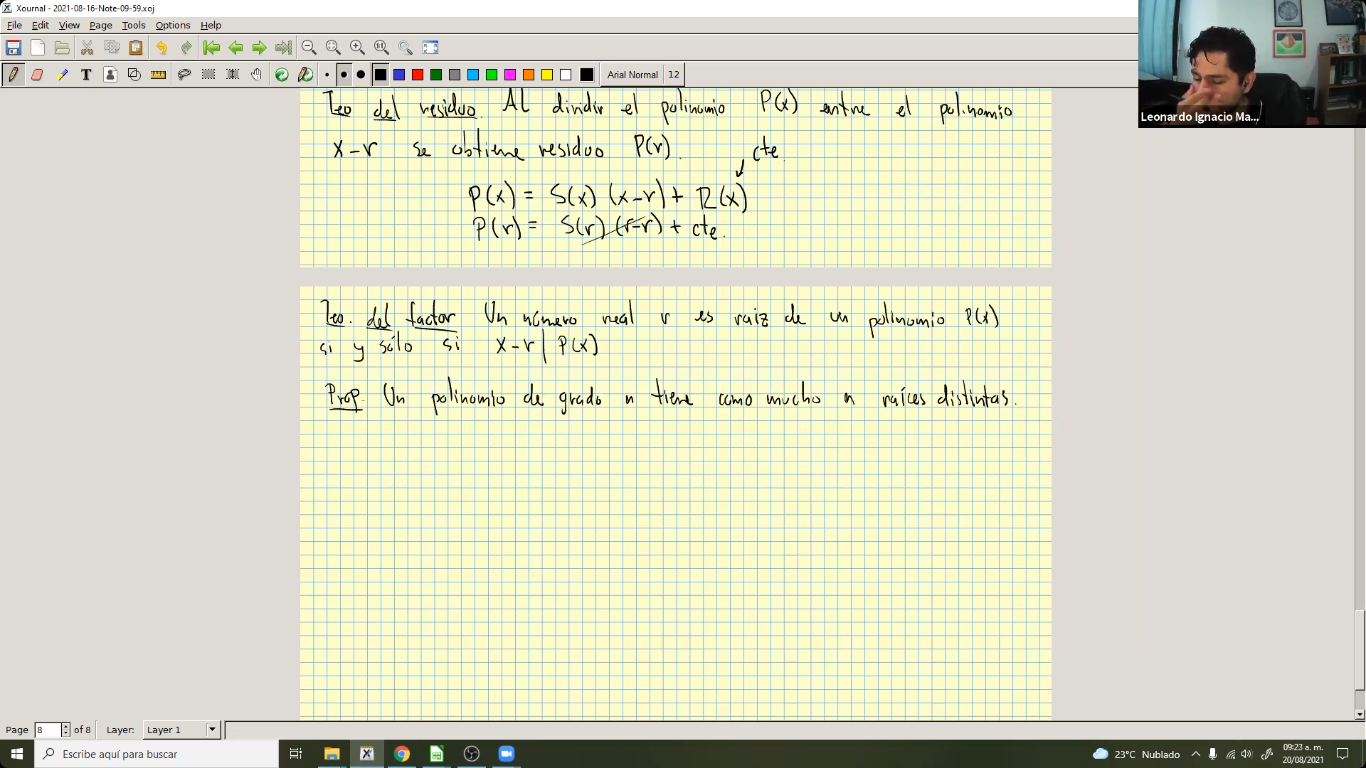 Xournal - 2021-08-16-Note-09-59.xoj
File Edit View Page Tools Options Help
Arial Normal 12
Teo del residuo. Al dividir el polinomio P(x) entre el polinomio
x-r se obtiene residuo P(r).
cte.
P(x) = S(x) (x-r) + R(x)
P(r) = S(r) (r-r) + cte.
Teo. del factor Un número real r es raiz de un polinomio P(x)
si y sólo si x-r | P(x)
Prop. Un polinomio de grado n tiene como mucho n raíces distintas.
Leonardo Ignacio Ma...
Page 8 of 8 Layer: Layer 1
Escribe aquí para buscar
23°C Nublado
09:23 a. m.
20/08/2021